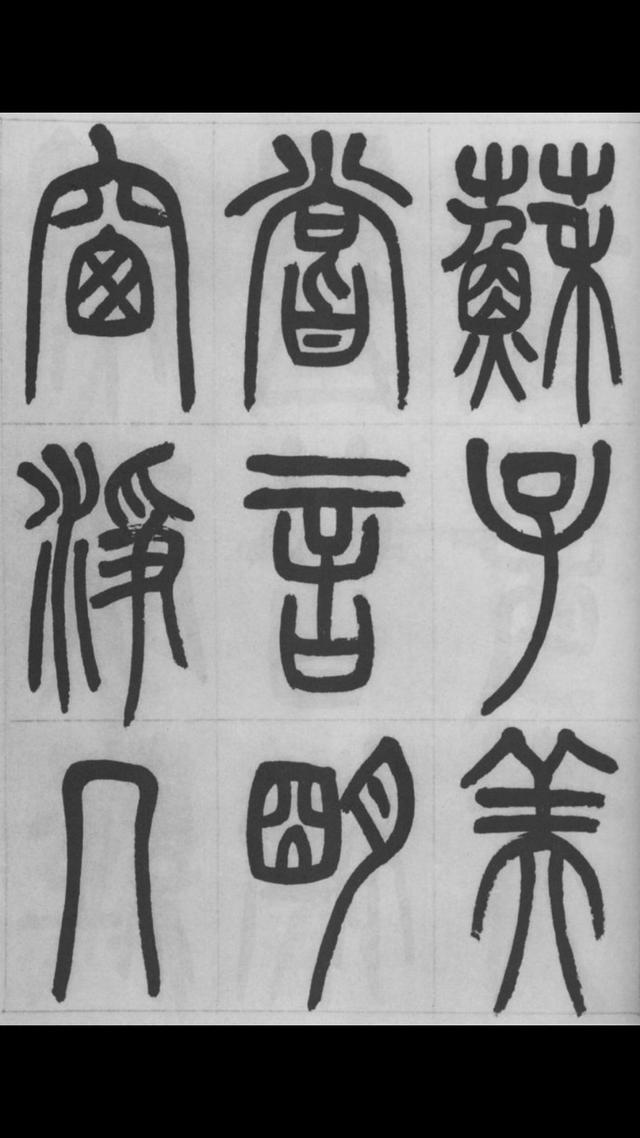 蘇子美
嘗言明
窗淨几